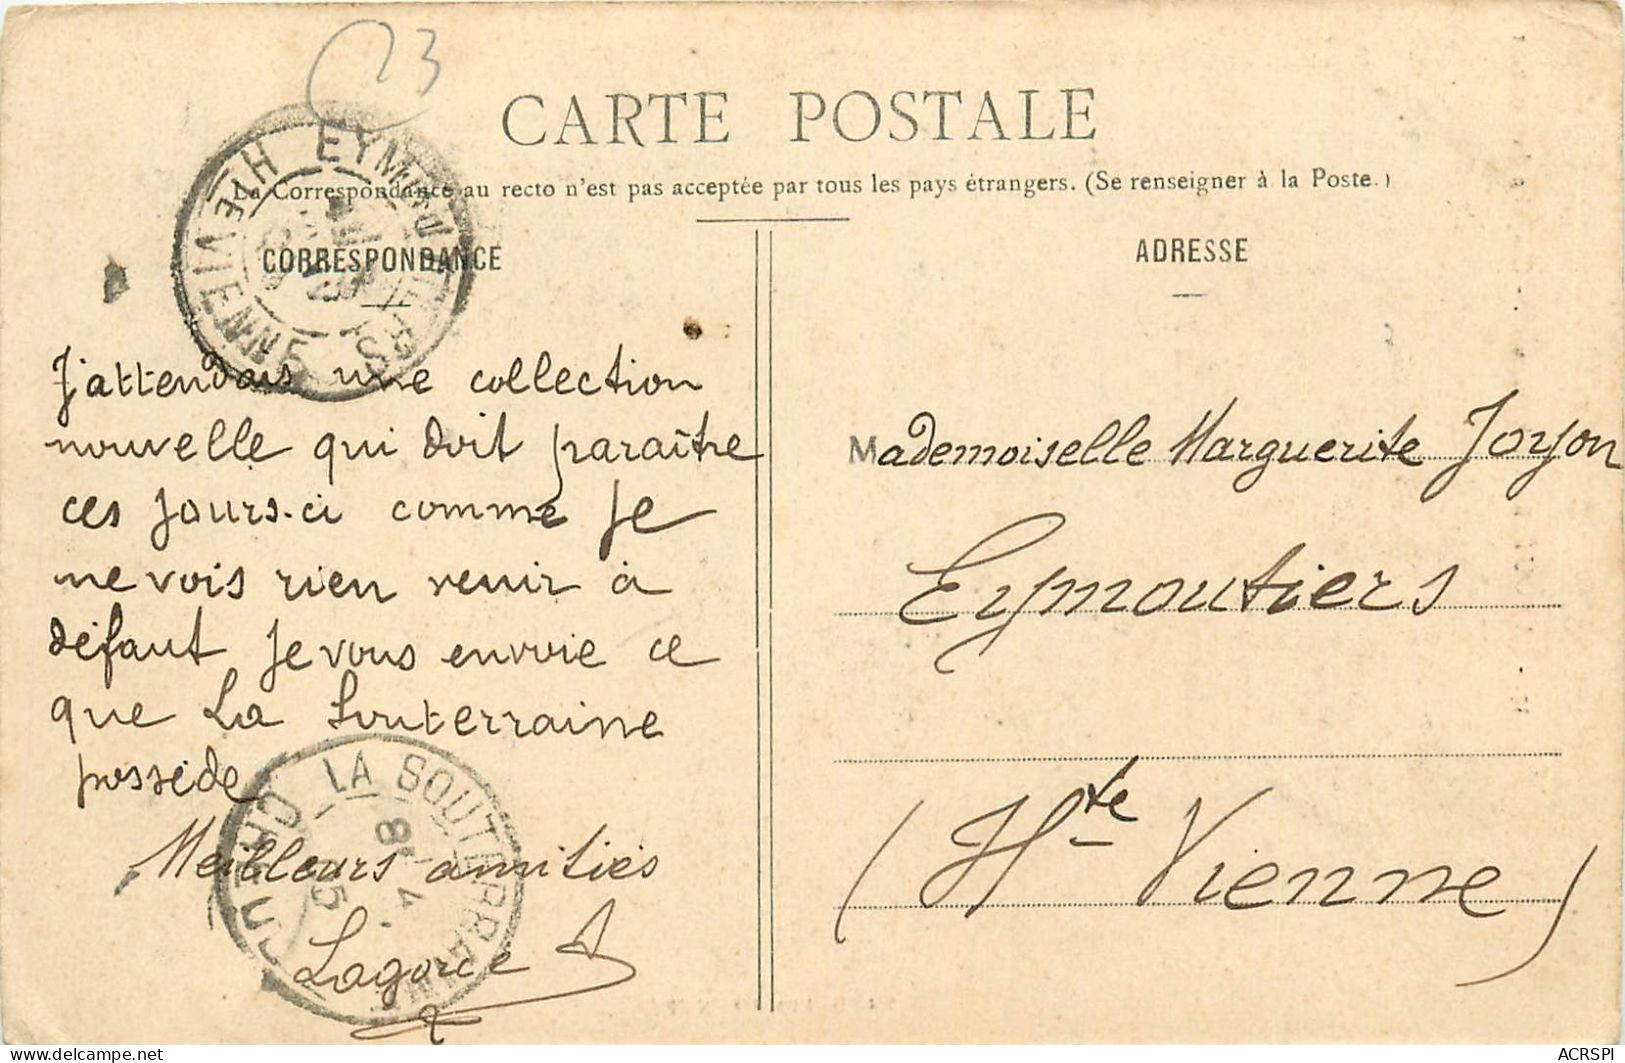 23
CARTE POSTALE
La Correspondance au recto n'est pas acceptée par tous les pays étrangers. (Se renseigner à la Poste.)
CORRESPONDANCE
J'attendais une collection
nouvelle qui doit paraître
ces jours-ci comme je
ne vois rien venir à
défaut je vous envoie ce
que La Souterraine
possède
Meilleurs amitiés
Lagorce
ADRESSE
Mademoiselle Marguerite Joyon
Eymoutiers
(Hte Vienne)
EYMOUTIERS
HTE VIENNE
LA SOUTERRAINE
CREUSE
ACRSPI